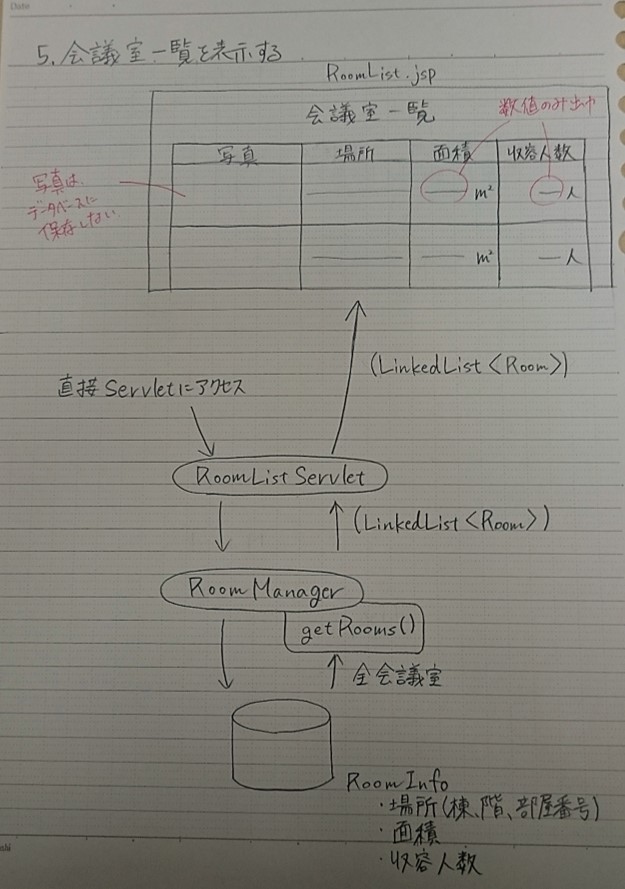 Date
5. 会議室一覧を表示する
RoomList.jsp
会議室一覧
数値のみ出力
写真 場所 面積 収容人数
写真は
データベースに
保存しない
m² 人
m² 人
(LinkedList<Room>)
直接Servletにアクセス
RoomListServlet
(LinkedList<Room>)
RoomManager
getRooms()
全会議室
RoomInfo
・場所(棟、階、部屋番号)
・面積
・収容人数